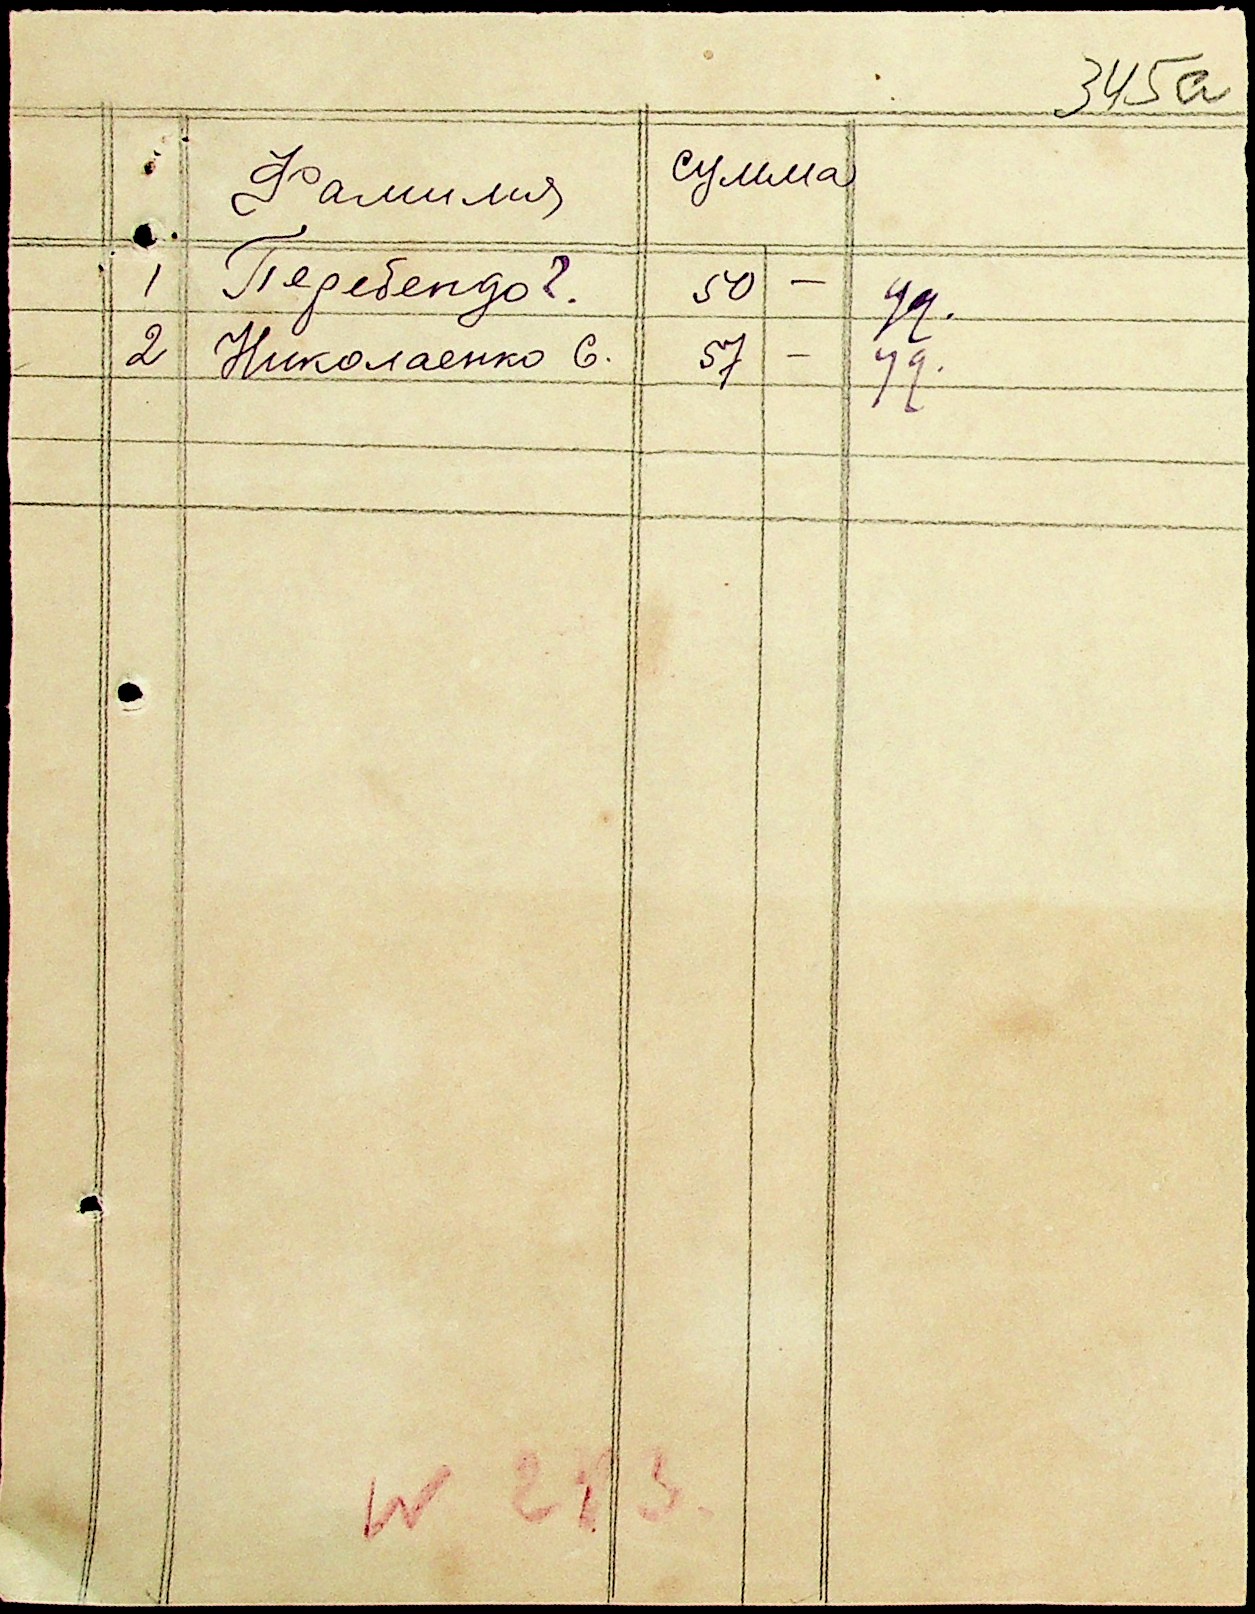 345а
Фамилия сумма
1 Перебендо Г. 50 —
2 Николаенко С. 57 —